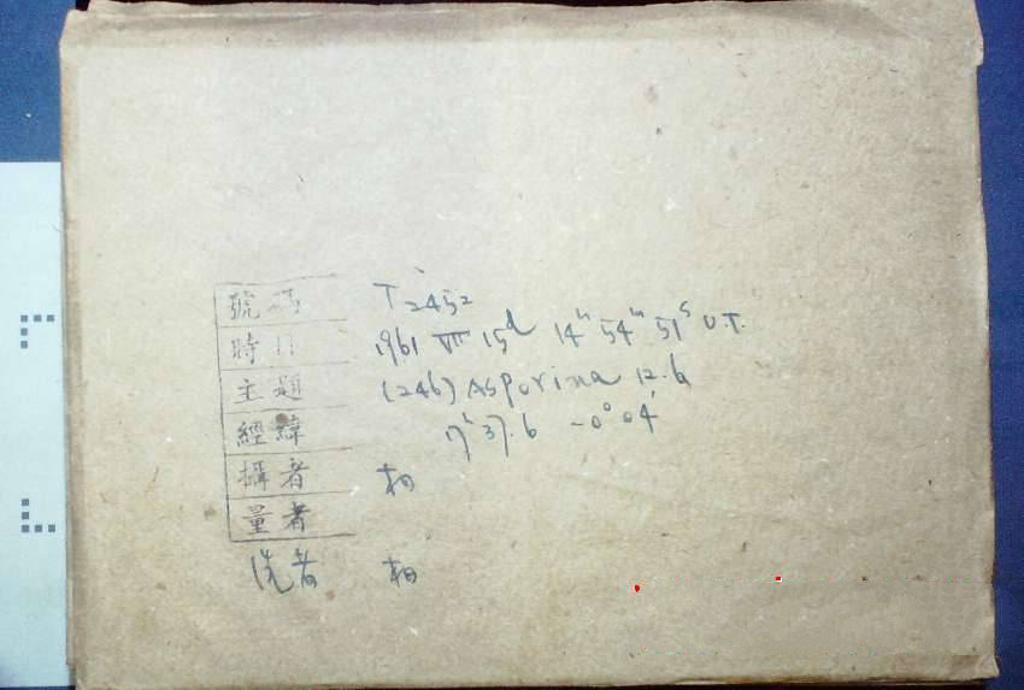 號碼 T2452
時日 1961 VIII 15d 14h 54m 51s U.T.
主題 (246) Asporina 12.6
經緯 17h 37.6 -0° 04'
攝者 柏
量者
洗者 柏